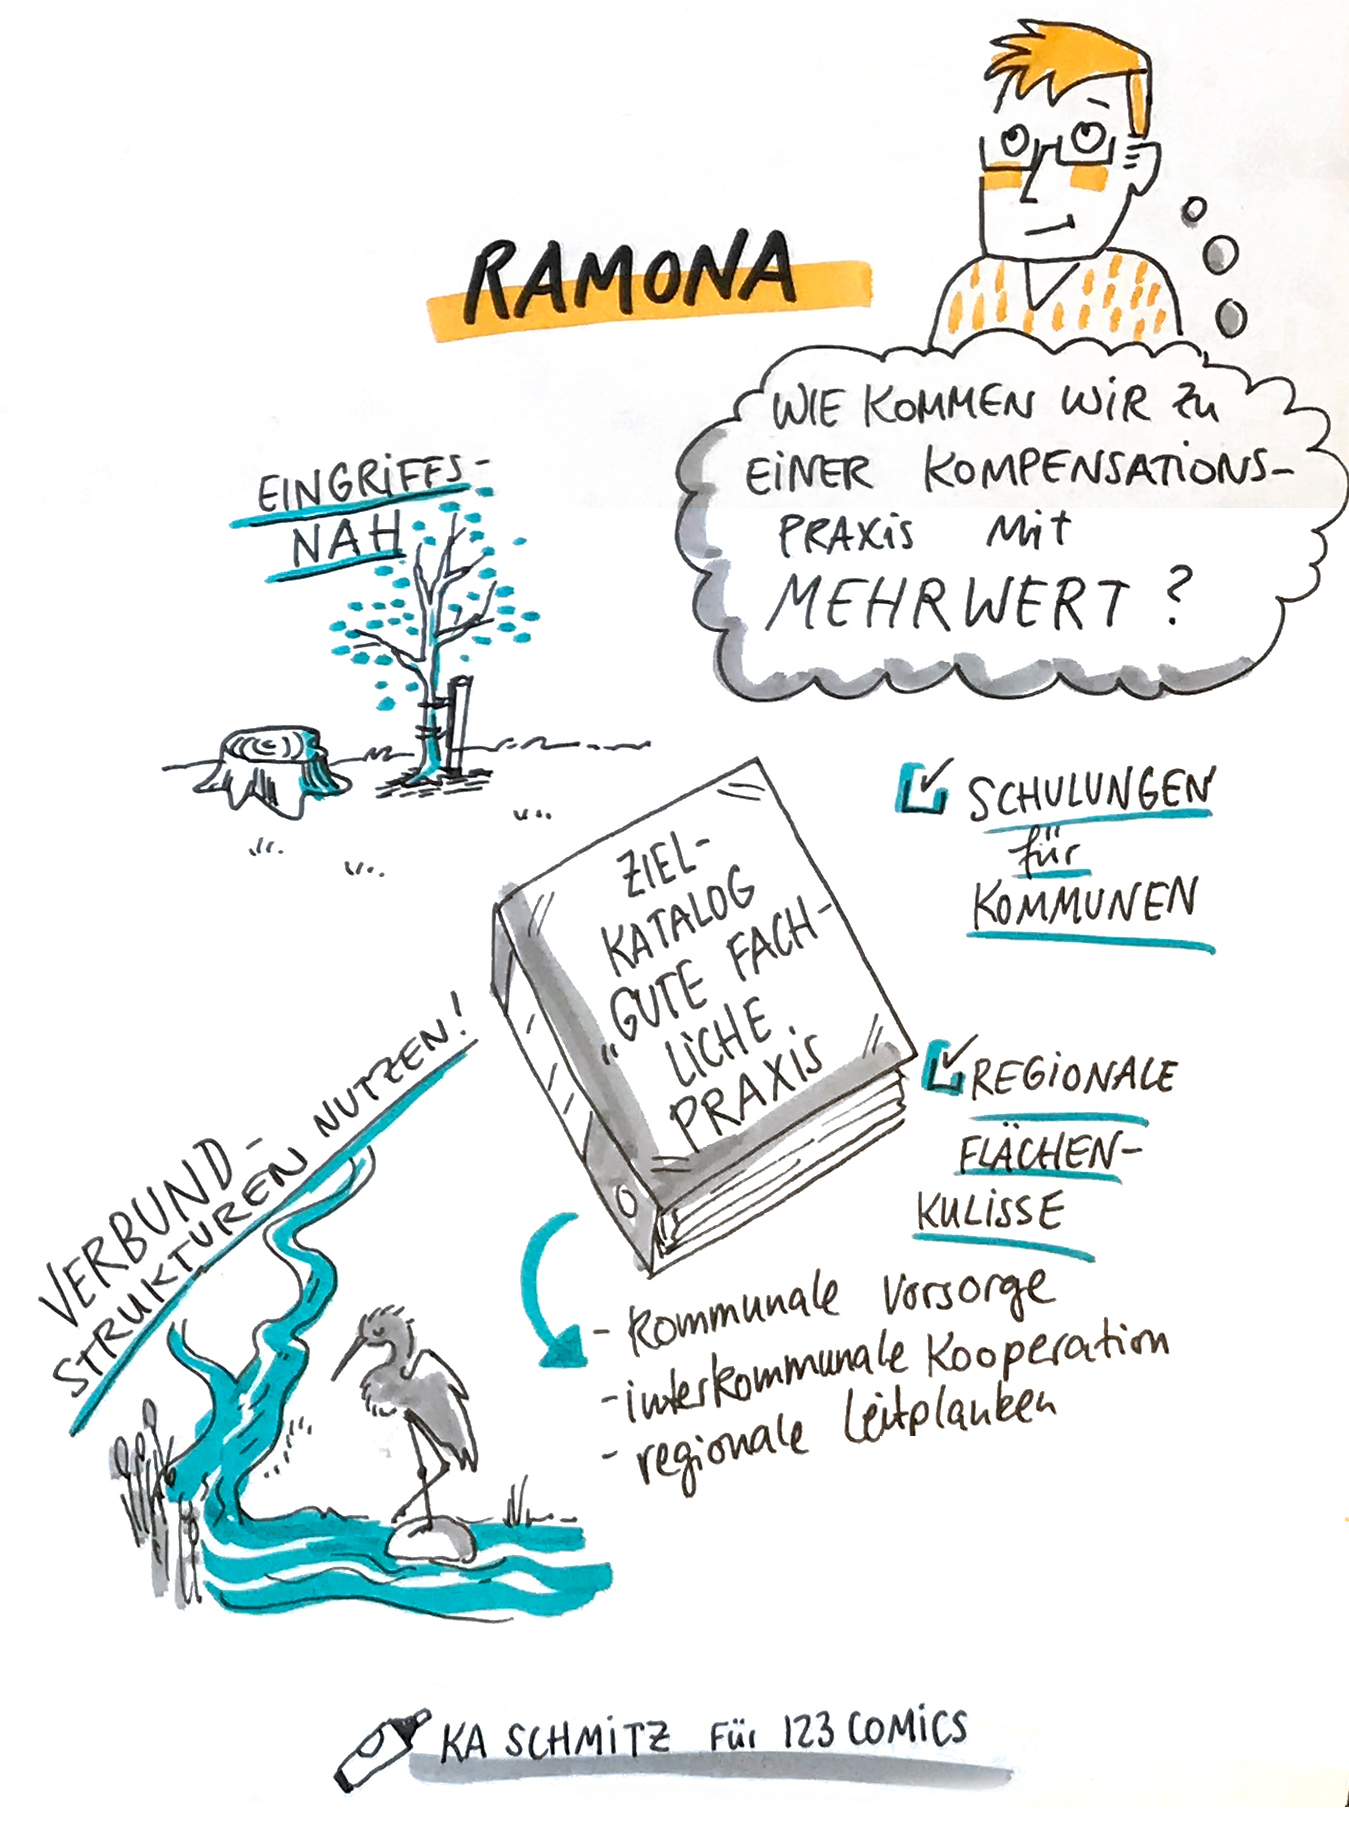 RAMONA
WIE KOMMEN WIR ZU
EINER KOMPENSATIONS-
PRAXIS MIT
MEHRWERT ?
EINGRIFFS-
NAH
SCHULUNGEN
für
KOMMUNEN
ZIEL-
KATALOG
„GUTE FACH-
LICHE
PRAXIS
REGIONALE
FLÄCHEN-
KULISSE
VERBUND-
STRUKTUREN NUTZEN!
- kommunale Vorsorge
- interkommunale Kooperation
- regionale Leitplanken
KA SCHMITZ FÜR 123 COMICS